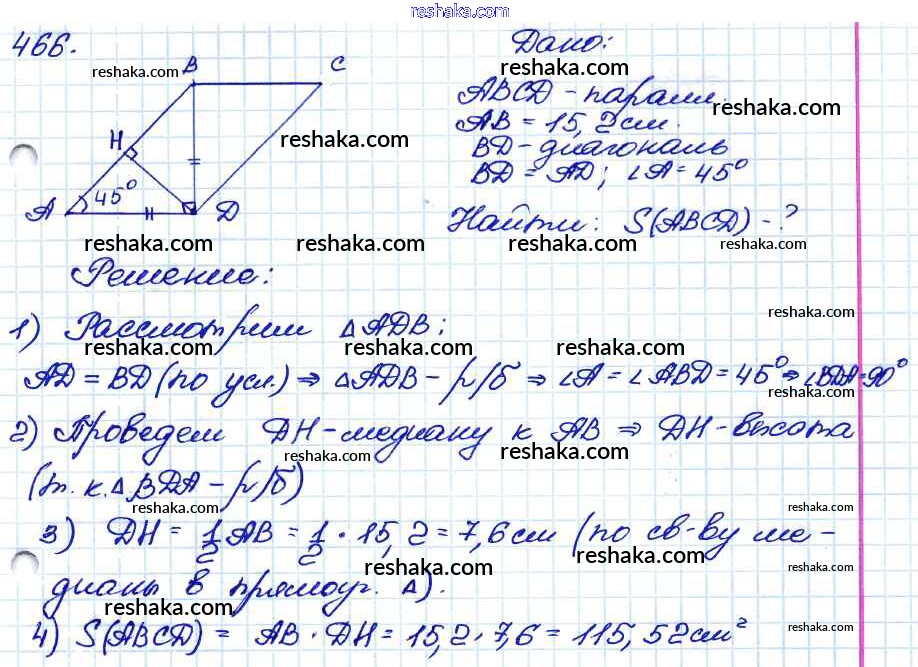 reshaka.com
466.
Дано:
reshaka.com
reshaka.com
B
C
ABCD – паралл.
reshaka.com
AB = 15,2 см.
H
reshaka.com
BD – диагональ
BD = AD; ∠A = 45°
45°
A
D
Найти: S(ABCD) – ?
reshaka.com reshaka.com reshaka.com reshaka.com
Решение:
reshaka.com
1) Рассмотрим △ADB;
reshaka.com reshaka.com reshaka.com
AD = BD (по усл.) ⇒ △ADB – р/б ⇒ ∠A = ∠ABD = 45° ⇒ ∠BDA = 90°
reshaka.com
2) Проведем DH – медиану к AB ⇒ DH – высота
reshaka.com reshaka.com reshaka.com
(т. к. △BDA – р/б)
reshaka.com reshaka.com
3) DH = 1/2 AB = 1/2 · 15,2 = 7,6 см (по св-ву ме-
reshaka.com reshaka.com reshaka.com
дианы в прямоуг. △).
reshaka.com reshaka.com
4) S(ABCD) = AB · DH = 15,2 · 7,6 = 115,52 см²
reshaka.com
reshaka.com